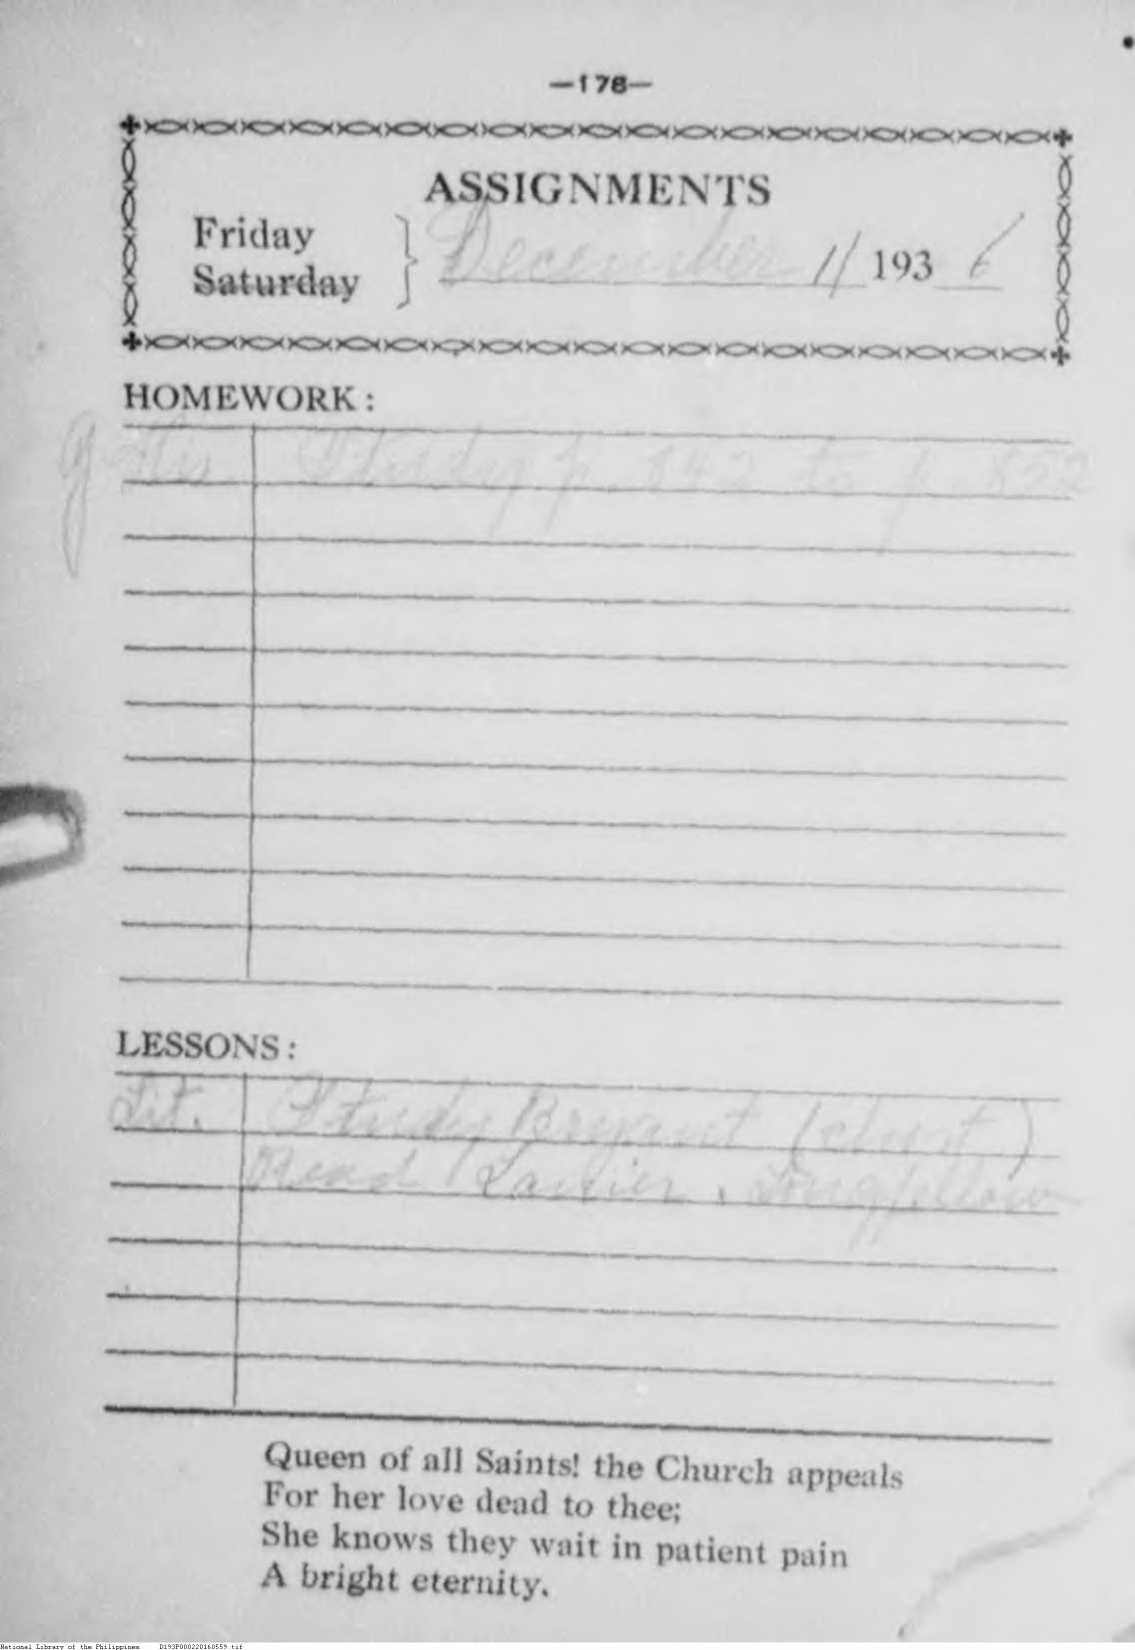 —176—
ASSIGNMENTS
Friday
Saturday
December 11 193 6
HOMEWORK:
g His Study p. 842 to p. 852
LESSONS:
Lit. Study Bryant (chart)
Read Lanier, Longfellow
Queen of all Saints! the Church appeals
For her love dead to thee;
She knows they wait in patient pain
A bright eternity.
National Library of the Philippines D193P000220160559.tif